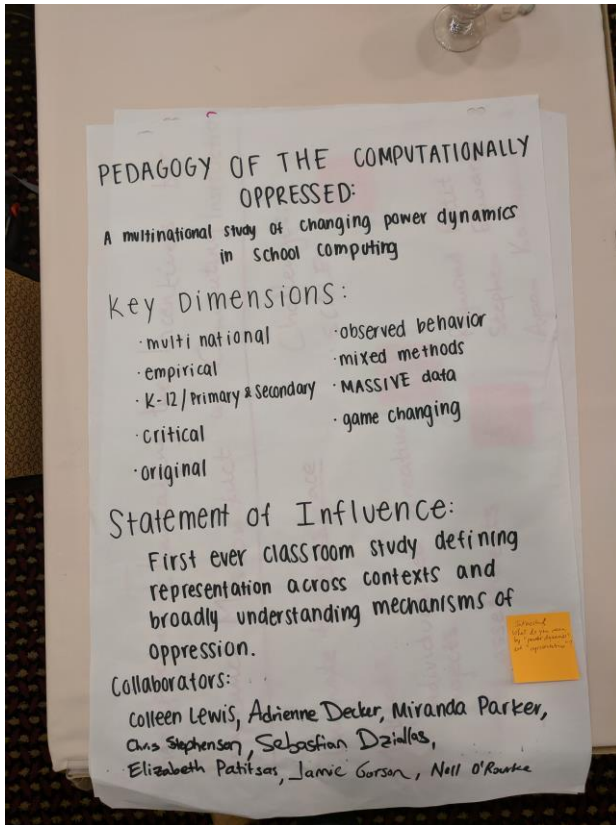 PEDAGOGY OF THE COMPUTATIONALLY
OPPRESSED:
A multinational study of changing power dynamics
in school computing
Key Dimensions:
· multi national
· empirical
· K-12 / Primary & Secondary
· critical
· original
· observed behavior
· mixed methods
· MASSIVE data
· game changing
Statement of Influence:
First ever classroom study defining
representation across contexts and
broadly understanding mechanisms of
oppression.
Collaborators:
Colleen Lewis, Adrienne Decker, Miranda Parker,
Chris Stephenson, Sebastian Dziallas,
Elizabeth Patitsas, Jamie Gorson, Nell O'Rourke
What do you mean
by "power dynamics"
and "representation"?